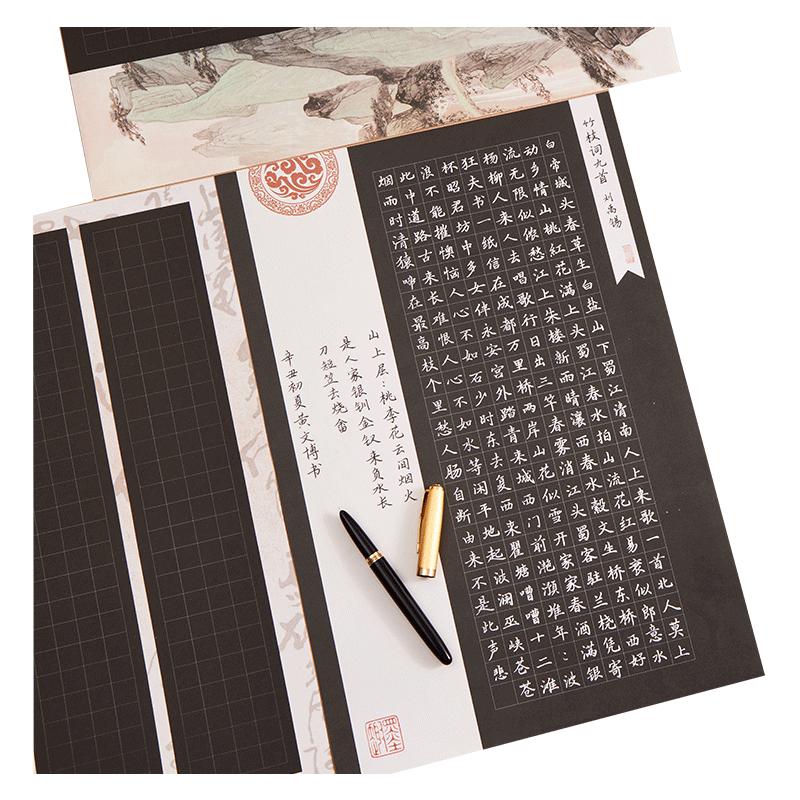 竹枝词九首 刘禹锡
白帝城头春草生白盐山下蜀江清南人上来歌一首北人莫上
动乡情山桃紅花满上头蜀江春水拍山流花红易衰似郎意水
流无限似侬愁江上朱楼新雨晴瀼西春水縠文生桥东桥西好
杨柳人来人去唱歌行日出三竿春雾消江头蜀客驻兰桡凭寄
狂夫书一纸信在成都万里桥两岸山花似雪开家家春酒满银
杯昭君坊中多女伴永安宫外踏青来城西门前滟滪堆年:波
浪不能摧懊恼人心不如石少时东去复西来瞿塘嘈嘈十二滩
此中道路古来长难恨人心不如水等闲平地起波澜巫峡苍苍
烟雨时清猿啼在最高枝个里愁人肠自断由来不是此声悲
山上层:桃李花云间烟火
是人家银钏金钗来负水长
刀短笠去烧畲
辛丑初夏黄文博书